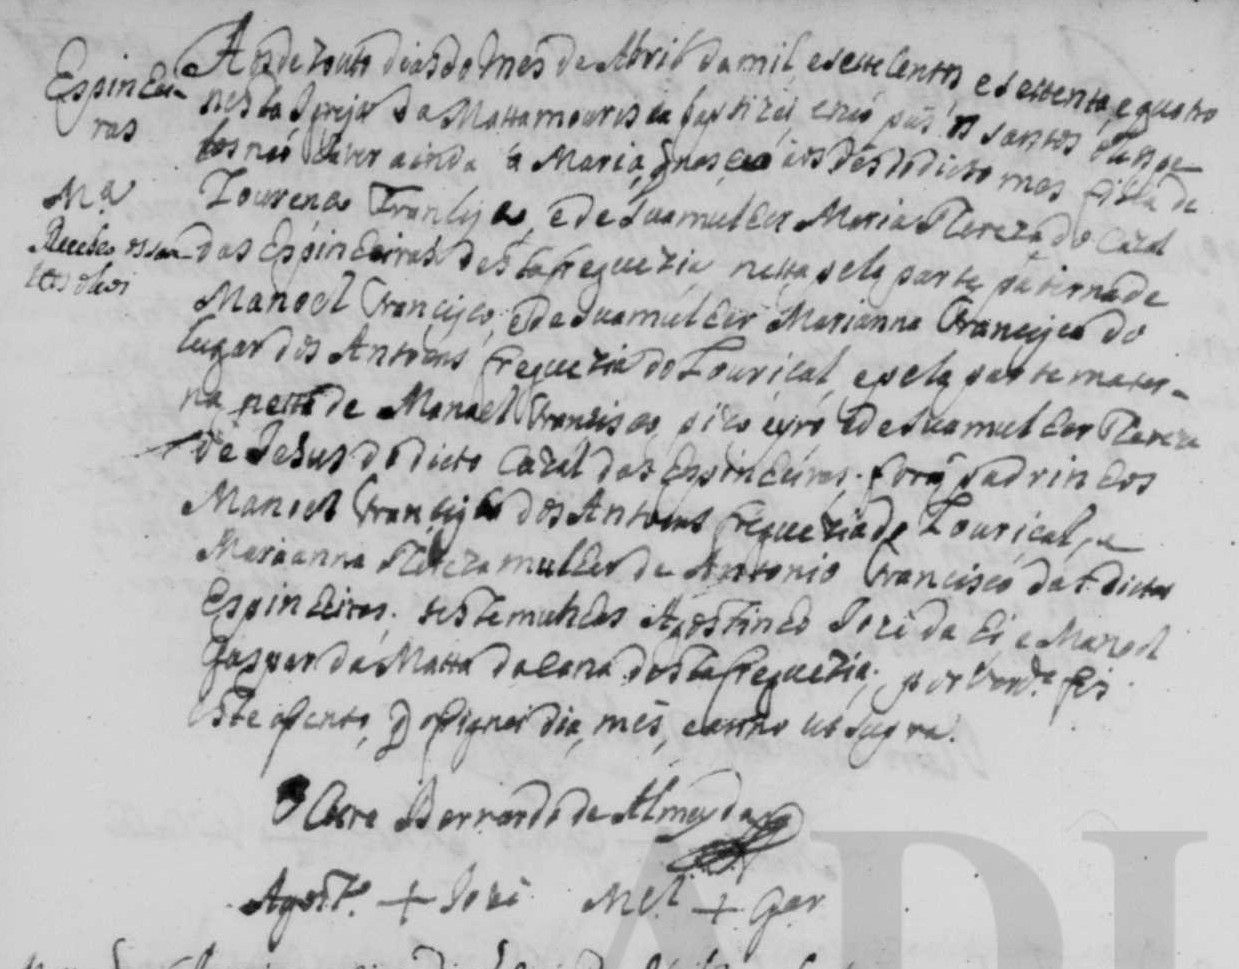 Espinhei-
ras
Ma
Recebeo os san-
ttos olios
Aos dezouto dias do mes de Abril da mil e sette centos e settenta, e quatro
nesta Igreja da Mattamourisca baptizei, e não pus os santos
por os não haver ainda a Maria, q nasceo aos des do dicto mes filha de
Lourenço Francisco, e de sua mulher Maria Thereza do Cazal
das Espinheiras desta freguezia netta pela parte paterna de
Manoel Francisco, e de sua mulher Marianna Francisca do
lugar dos Antoens freguezia do Louriçal, e pela parte mater-
na netta de Manoel Francisco, e de sua mulher Thereza
de Jesus do dicto Cazal das Espinheiras; forão padrinhos
Manoel Francisco dos Antoens freguezia do Louriçal, e
Marianna Thereza mulher de Antonio Francisco das dictas
Espinheiras; testemunhas Agostinho Jozé da e Manoel
Gaspar da Matta desta freguezia; por verd.e fis
este asento, q asignei dia, mes, e anno ut supra.
O Cura Bernardo de Almeyda
Agost.o + Jozé Mel + Gar
ADL